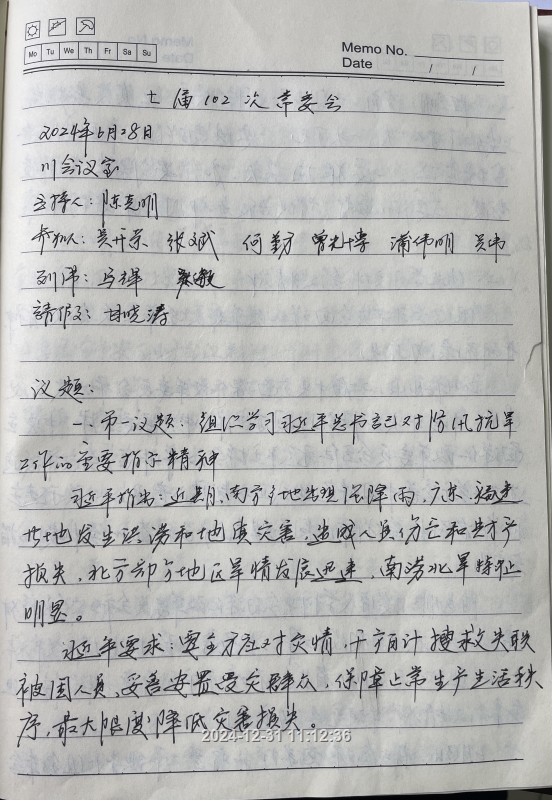 Mo Tu We Th Fr Sa Su
Memo No.
Date / /
七届102次常委会
2024年6月28日
川会议室
主持人：陈克明
参加人：吴开荣 张斌 何勤 曾光博 蒲伟明 吴韦
列席：马辉 敏
請假：甘晓涛
议题：
一、第一议题：组织学习习近平总书记对防汛抗旱
工作的重要指示精神
习近平指出：近期，南方多地出现强降雨，广东、福建
等地发生洪涝和地质灾害，造成人员伤亡和财产
损失，北方部分地区旱情发展迅速，南涝北旱特征
明显。
习近平要求：要全力应对灾情，千方百计搜救失联
被困人员，妥善安置受灾群众，保障正常生产生活秩
序，最大限度降低灾害损失。
2024-12-31 11:12:36